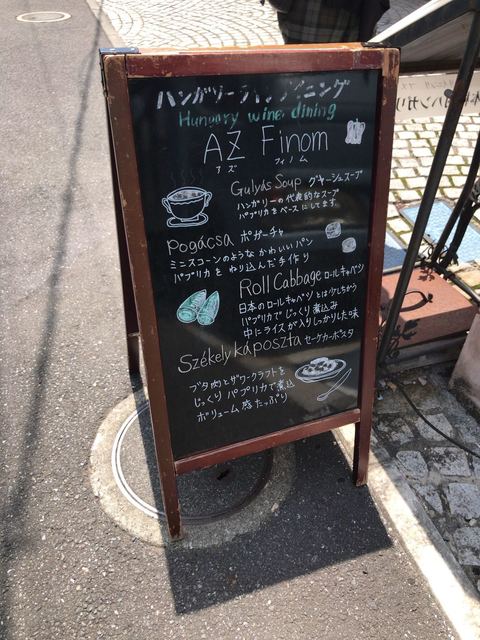 ハンガリーワインダイニング
Hungary wine, dining
AZ Finom
アズ フィノム
Gulyás Soup グヤーシュスープ
ハンガリーの代表的なスープ
パプリカをベースにしてます
Pogácsa ポガーチャ
ミニスコーンのような かわいいパン
パプリカを ねり込んだ手作り
Roll Cabbage ロールキャベツ
日本のロールキャベツとは少しちがう
パプリカでじっくり煮込み
中にライスが入りしっかりした味
Székely káposzta セーケーカーポスタ
ブタ肉とザワークラフトを
じっくり パプリカで煮込
ボリューム感たっぷり
ハンガリ